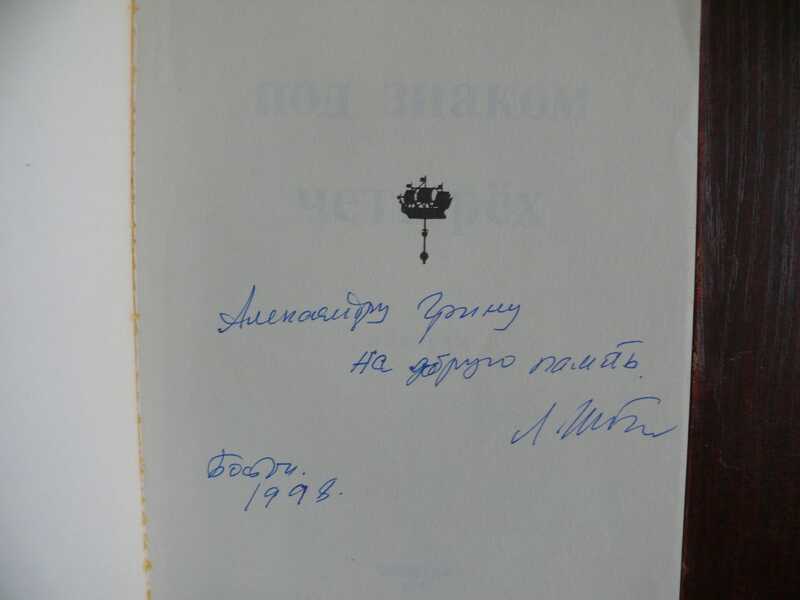 под знаком
четырёх
Александру Грину
на добрую память.
Л. Шт
Бостон.
1998.